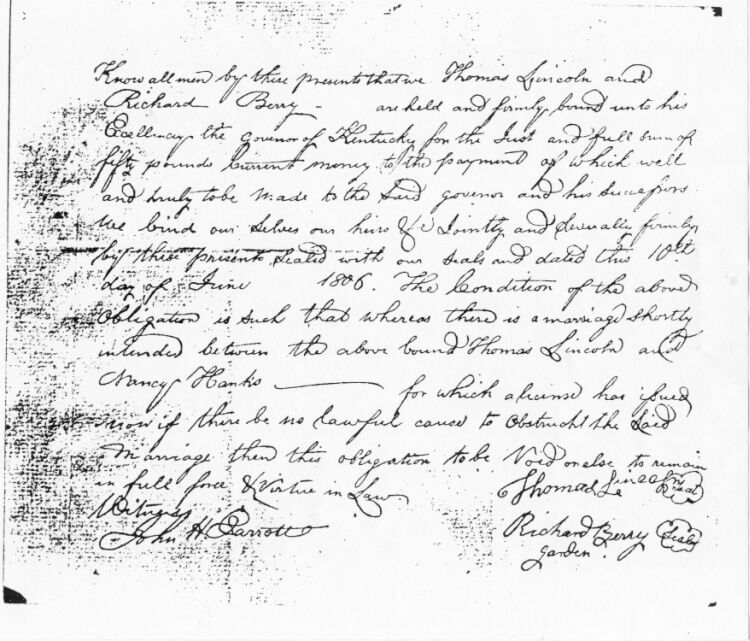 Know all men by these presents that we Thomas Lincoln and
Richard Berry - are held and firmly bound unto his
Excellency the govenor of Kentucky for the Just and full sum of
fifty pounds Current money to the payment of which well
and truly to be made to the said govenor and his Successors
We bind our selves our heirs &c Jointly and Severally firmly
by these presents Sealed with our Seals and dated this 10th
day of June 1806. The Condition of the above
Obligation is Such that whereas there is a marriage Shortly
intended between the above bound Thomas Lincoln and
Nancy Hanks — for which a licinse has issued
now if there be no lawful cause to obstruct the Said
marriage then this obligation to be Void or else to remain
in full force & Virtue in Law
Thomas Lincoln Seal
Witness
John H Parrott
Richard Berry Seal
garden